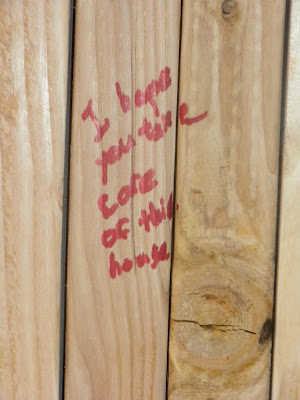 I hope
you take
care
of this
house